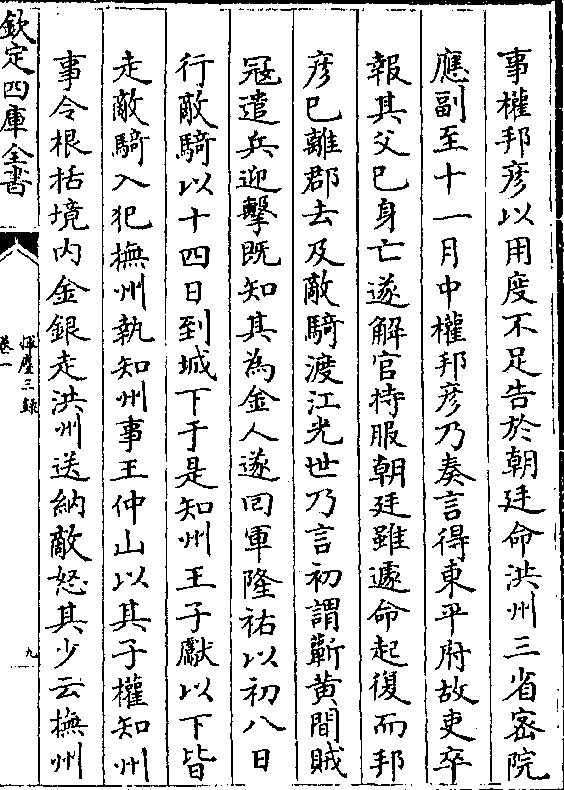 事權邦彦以用度不足告於朝廷命洪州三省宻院
應副至十一月中權邦彦乃奏言得東平府故吏卒
報其父已身亡遂解官持服朝廷雖遽命起復而邦
彦已離郡去及敵騎渡江光世乃言初謂蘄黄間賊
冦遣兵迎擊既知其為金人遂回軍隆祐以初八日
行敵騎以十四日到城下于是知州王子獻以下皆
走敵騎入犯撫州執知州事王仲山以其子權知州
事令根括境内金銀走洪州送納敵怒其少云撫州
欽定四庫全書
揮麈三録
卷一
九